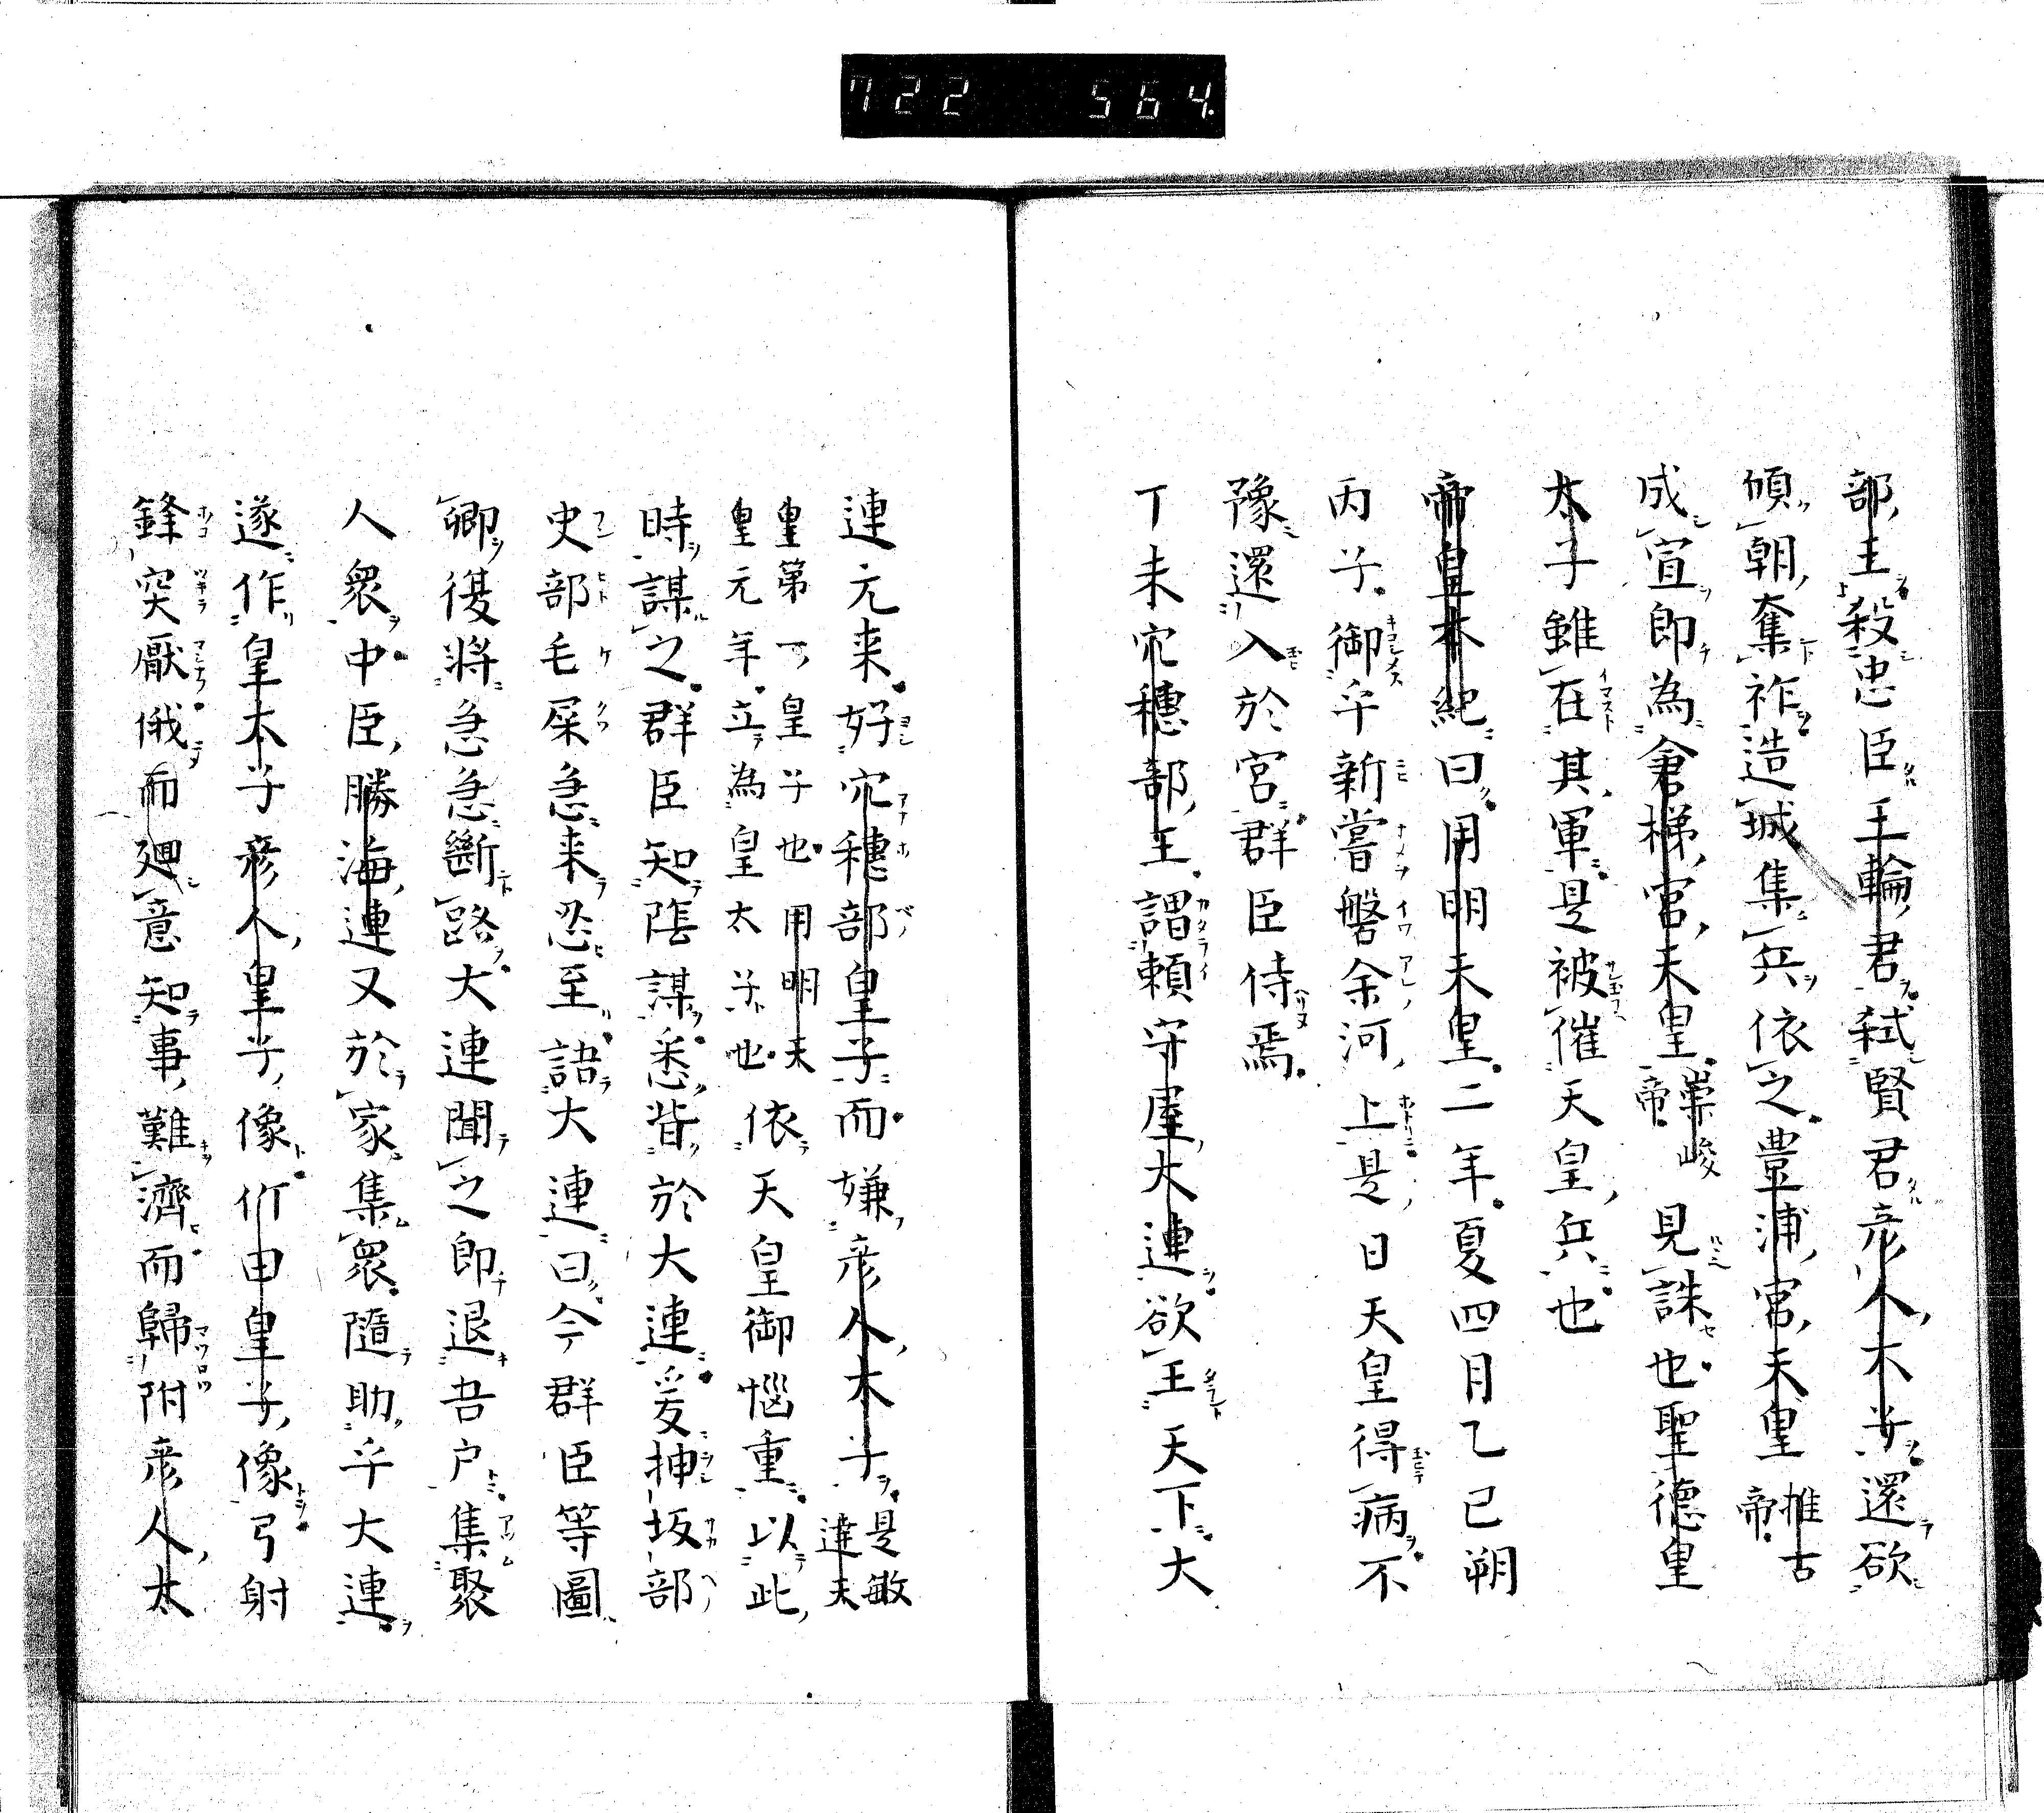 722 564
部王殺忠臣王輪君弑賢君彦人太子還欲
傾朝奪祚造城集兵依之豊浦宮天皇推古帝
成宣即為倉梯宮天皇崇峻帝見誅也聖德皇
太子雖在其軍是被催天皇兵也
帝皇本紀曰用明天皇二年夏四月乙巳朔
丙子御乎新嘗磐余河上是日天皇得病不
豫還入於宮群臣侍焉
丁未穴穗部王謂頼守屋大連欲王天下大
連元来好穴穗部皇子而嫌彦人太子是敏達天
皇第一皇子也用明天皇元年立為皇太子也依天皇御惱重以此
時謀之群臣知陰謀悉告於大連爰押坂部
史部毛屎急来忍至語大連曰今群臣等圖
卿復將急急斷路大連聞之即退吾戸集聚
人衆中臣勝海連又於家集衆隨助乎大連
遂作皇太子彦人皇子像竹田皇子像弓射
鋒突厭俄而廻意知事難濟而歸附彦人太